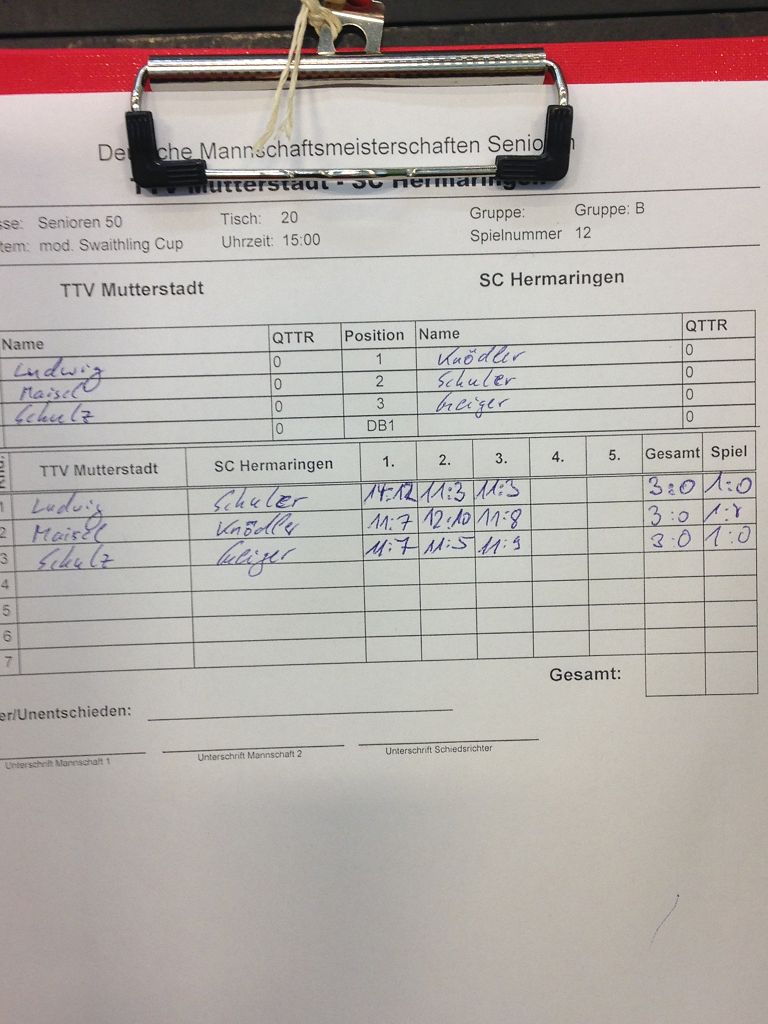 Deutsche Mannschaftsmeisterschaften Senioren
TTV Mutterstadt - SC Hermaringen
sse: Senioren 50 Tisch: 20 Gruppe: Gruppe: B
tem: mod. Swaithling Cup Uhrzeit: 15:00 Spielnummer 12
TTV Mutterstadt SC Hermaringen
Name QTTR Position Name QTTR
Ludwig 0 1 Knödler 0
Maisel 0 2 Schuler 0
Schulz 0 3 Geiger 0
0 DB1 0
TTV Mutterstadt SC Hermaringen 1. 2. 3. 4. 5. Gesamt Spiel
1 Ludwig Schuler 14:12 11:3 11:3 3:0 1:0
2 Maisel Knödler 11:7 12:10 11:8 3:0
3 Schulz Geiger 11:7 11:5 11:9 3:0 1:0
4
5
6
7
Gesamt:
er/Unentschieden:
Unterschrift Mannschaft 1 Unterschrift Mannschaft 2 Unterschrift Schiedsrichter